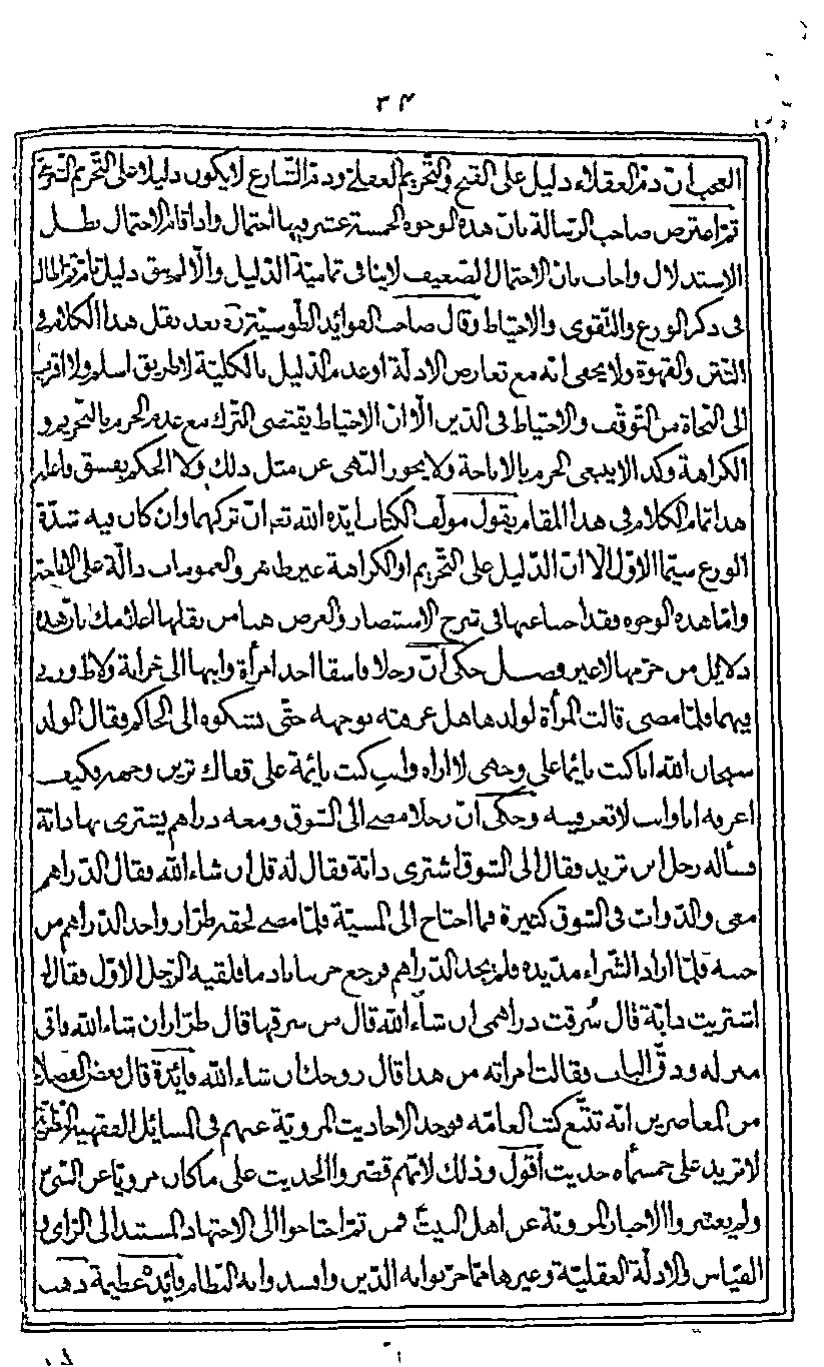 ٣۴
العجب ان ذم العقلاء دليل على القبح والتحريم العقلي وذم الشارع لا يكون دليلا على التحريم الشرعي
ثم اعترض صاحب الرسالة بان هذه الوجوه الخمسة عشر فيها احتمال واذا قام الاحتمال بطل
الاستدلال واجاب بان الاحتمال الضعيف لا ينافى تمامية الدليل والا لم يبق دليل تام ثم اطال
فى ذكر الورع والتقوى والاحتياط وقال صاحب الفوائد الطوسيّة ره بعد نقل هذا الكلام فى
التتن والقهوة ولا يخفى انه مع تعارض الادلّة او عدم الدليل بالكليّة لا طريق اسلم ولا اقرب
الى النجاة من التوقّف والاحتياط فى الدّين الّا انّ الاحتياط يقتضى الترك مع عدم الجزم بالتحريم و
الكراهة وكذا لا ينبغى الجزم بالاباحة ولا يجوز النهى عن مثل ذلك ولا الحكم بفسق فاعله
هذا تمام الكلام فى هذا المقام يقول مولّف الكتاب ايّده الله تعه انّ تركهما وان كان فيه شدّة
الورع سيّما الاوّل الّا انّ الدّليل على التّحريم او الكراهة غير ظاهر والعمومات دالّة على الاباحة
وامّا هذه الوجوه فقد اجبنا عنها فى شرح الاستبصار والغرض هنا من نقلها اعلامك بانّ هذه
دلايل من حرّمها لا غير فصل حكى انّ رجلا فاسقا اخذ امرأة وابنها الى خرابة ولاط وزنى
بهما فلمّا مضى قالت المرأة لولدها هل عرفته بوجهه حتّى نشكوه الى الحاكم فقال الولد
سبحان الله انا كنت نايما على وجهى لا اراه وانت كنت نايمة على قفاك ترين وجهه فكيف
اعرفه انا وانت لا تعرفينه وحكى انّ رجلا مضى الى السّوق ومعه دراهم يشترى بها دابّة
فسأله رجل اين تريد فقال الى السّوق اشترى دابّة فقال له قل ان شاء الله فقال الدّراهم
معى والدّواب فى السّوق كثيرة فما احتاج الى المشيّة فلمّا مضى لحقه طرّار واخذ الدّراهم من
جيبه فلمّا اراد الشّراء مدّ يده فلم يجد الدّراهم فرجع حزينا نادما فلقيه الرّجل الاوّل فقال له
اشتريت دابّة قال سُرقت دراهمى ان شاء الله قال من سرقها قال طرّار ان شاء الله فاتى
منزله ودقّ الباب فقالت امراته من هذا قال زوجك ان شاء الله فائدة قال بعض الفضلاء
من المعاصرين انه تتبّع كتب العامّه فوجد الاحاديث المرويّة عنهم فى المسائل الفقهيّة النظريّة
لا تزيد على خمسمأه حديث اقول وذلك لانّهم قصّروا الحديث على ما كان مرويّا عن النبىّ ص
ولم يعتبروا الاخبار المرويّة عن اهل البيت ع فمن ثمّ احتاجوا الى الاجتهاد المستند الى الرّاى و
القياس والادلّة العقليّة وغيرها ممّا خرّبوا به الدّين وافسدوا به النظام فائدة عظيمة ذهب